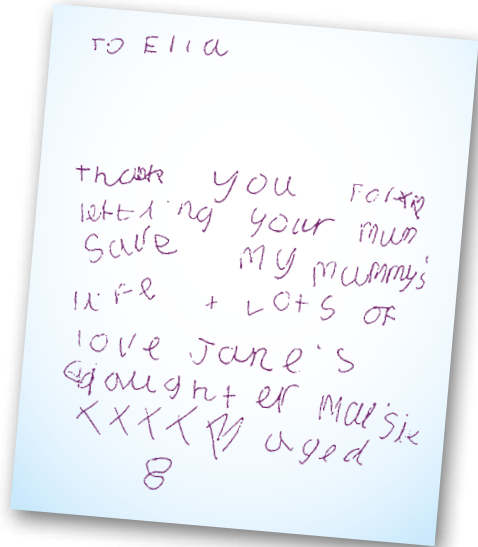 TO Ella
thank you For
letting your mum
save my mummy's
life + LOtS OF
love Jane's
daughter Maisie
XXXX aged
8